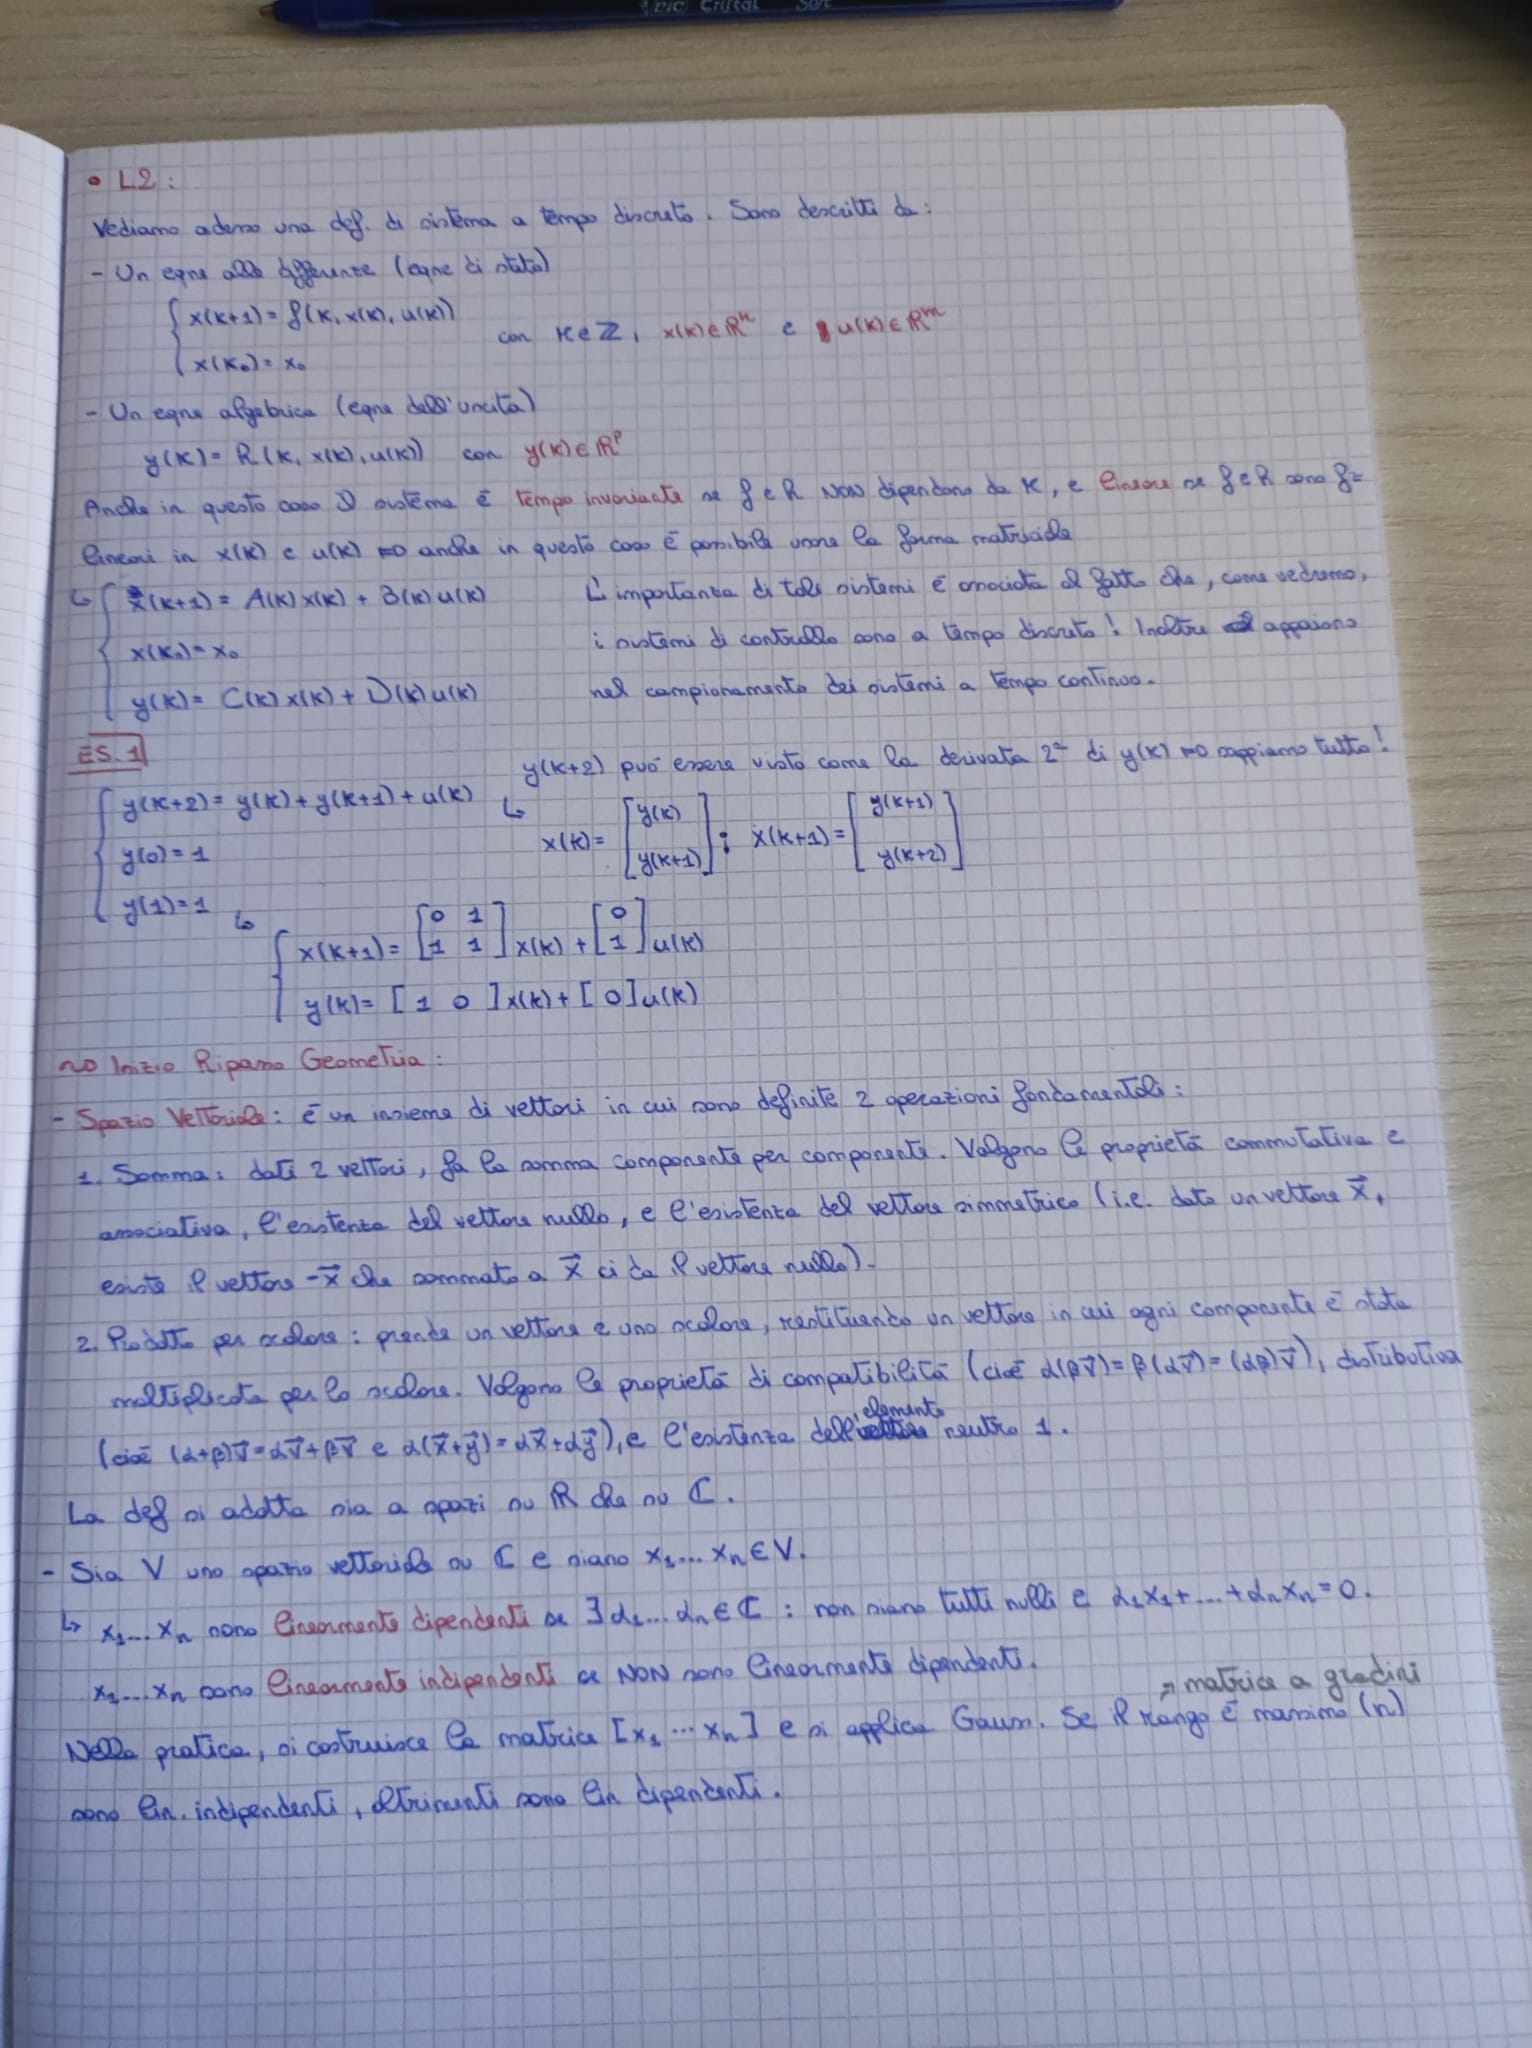 Cristal Soft
• L2:
Vediamo adesso una def. di sistema a tempo discreto. Sono descritti da:
- Un eqne alle differenze (eqne di stato)
{ x(k+1) = f(k, x(k), u(k))
x(k₀) = x₀
con k∈ℤ, x(k)∈ℝⁿ e u(k)∈ℝᵐ
- Un eqne algebrica (eqne dell'uscita)
y(k) = h(k, x(k), u(k)) con y(k)∈ℝᵖ
Anche in questo caso il sistema è tempo invariante se f e h NON dipendono da k, e lineare se f e h sono f=
lineari in x(k) e u(k) ⇒ anche in questo caso è possibile usare la forma matriciale
↳ { x(k+1) = A(k)x(k) + B(k)u(k)
x(k₀) = x₀
y(k) = C(k)x(k) + D(k)u(k)
L'importanza di tali sistemi è associata al fatto che, come vedremo,
i sistemi di controllo sono a tempo discreto! Inoltre appaiono
nel campionamento dei sistemi a tempo continuo.
ES. 1
{ y(k+2) = y(k) + y(k+1) + u(k)
y(0) = 1
y(1) = 1
y(k+2) può essere visto come la derivata 2ª di y(k) ⇒ sappiamo tutto!
↳ x(k) = [y(k) y(k+1)]; x(k+1) = [y(k+1) y(k+2)]
↳ { x(k+1) = [0 1 1 1] x(k) + [0 1] u(k)
y(k) = [1 0]x(k) + [0]u(k)
~> Inizio Ripasso Geometria:
- Spazio Vettoriale: è un insieme di vettori in cui sono definite 2 operazioni fondamentali:
1. Somma: dati 2 vettori, fa la somma componente per componente. Valgono le proprietà commutativa e
associativa, l'esistenza del vettore nullo, e l'esistenza del vettore simmetrico (i.e. dato un vettore x⃗,
esiste il vettore -x⃗ che sommato a x⃗ ci da il vettore nullo).
2. Prodotto per scalare: prende un vettore e uno scalare, restituendo un vettore in cui ogni componente è stata
moltiplicata per lo scalare. Valgono le proprietà di compatibilità (cioè α(βv⃗) = β(αv⃗) = (αβ)v⃗), distributiva
(cioè (α+β)v⃗ = αv⃗ + βv⃗ e α(x⃗+y⃗) = αx⃗ + αy⃗), e l'esistenza dell'elemento neutro 1.
La def si adatta sia a spazi su ℝ che su ℂ.
- Sia V uno spazio vettoriale su ℂ e siano x₁...xₙ∈V.
↳ x₁...xₙ sono linearmente dipendenti se ∃α₁...αₙ∈ℂ : non siano tutti nulli e α₁x₁+...+αₙxₙ = 0.
x₁...xₙ sono linearmente indipendenti se NON sono linearmente dipendenti.
↗ matrice a gradini
Nella pratica, si costruisce la matrice [x₁ ... xₙ] e si applica Gauss. Se il rango è massimo (n)
sono lin. indipendenti, altrimenti sono lin dipendenti.